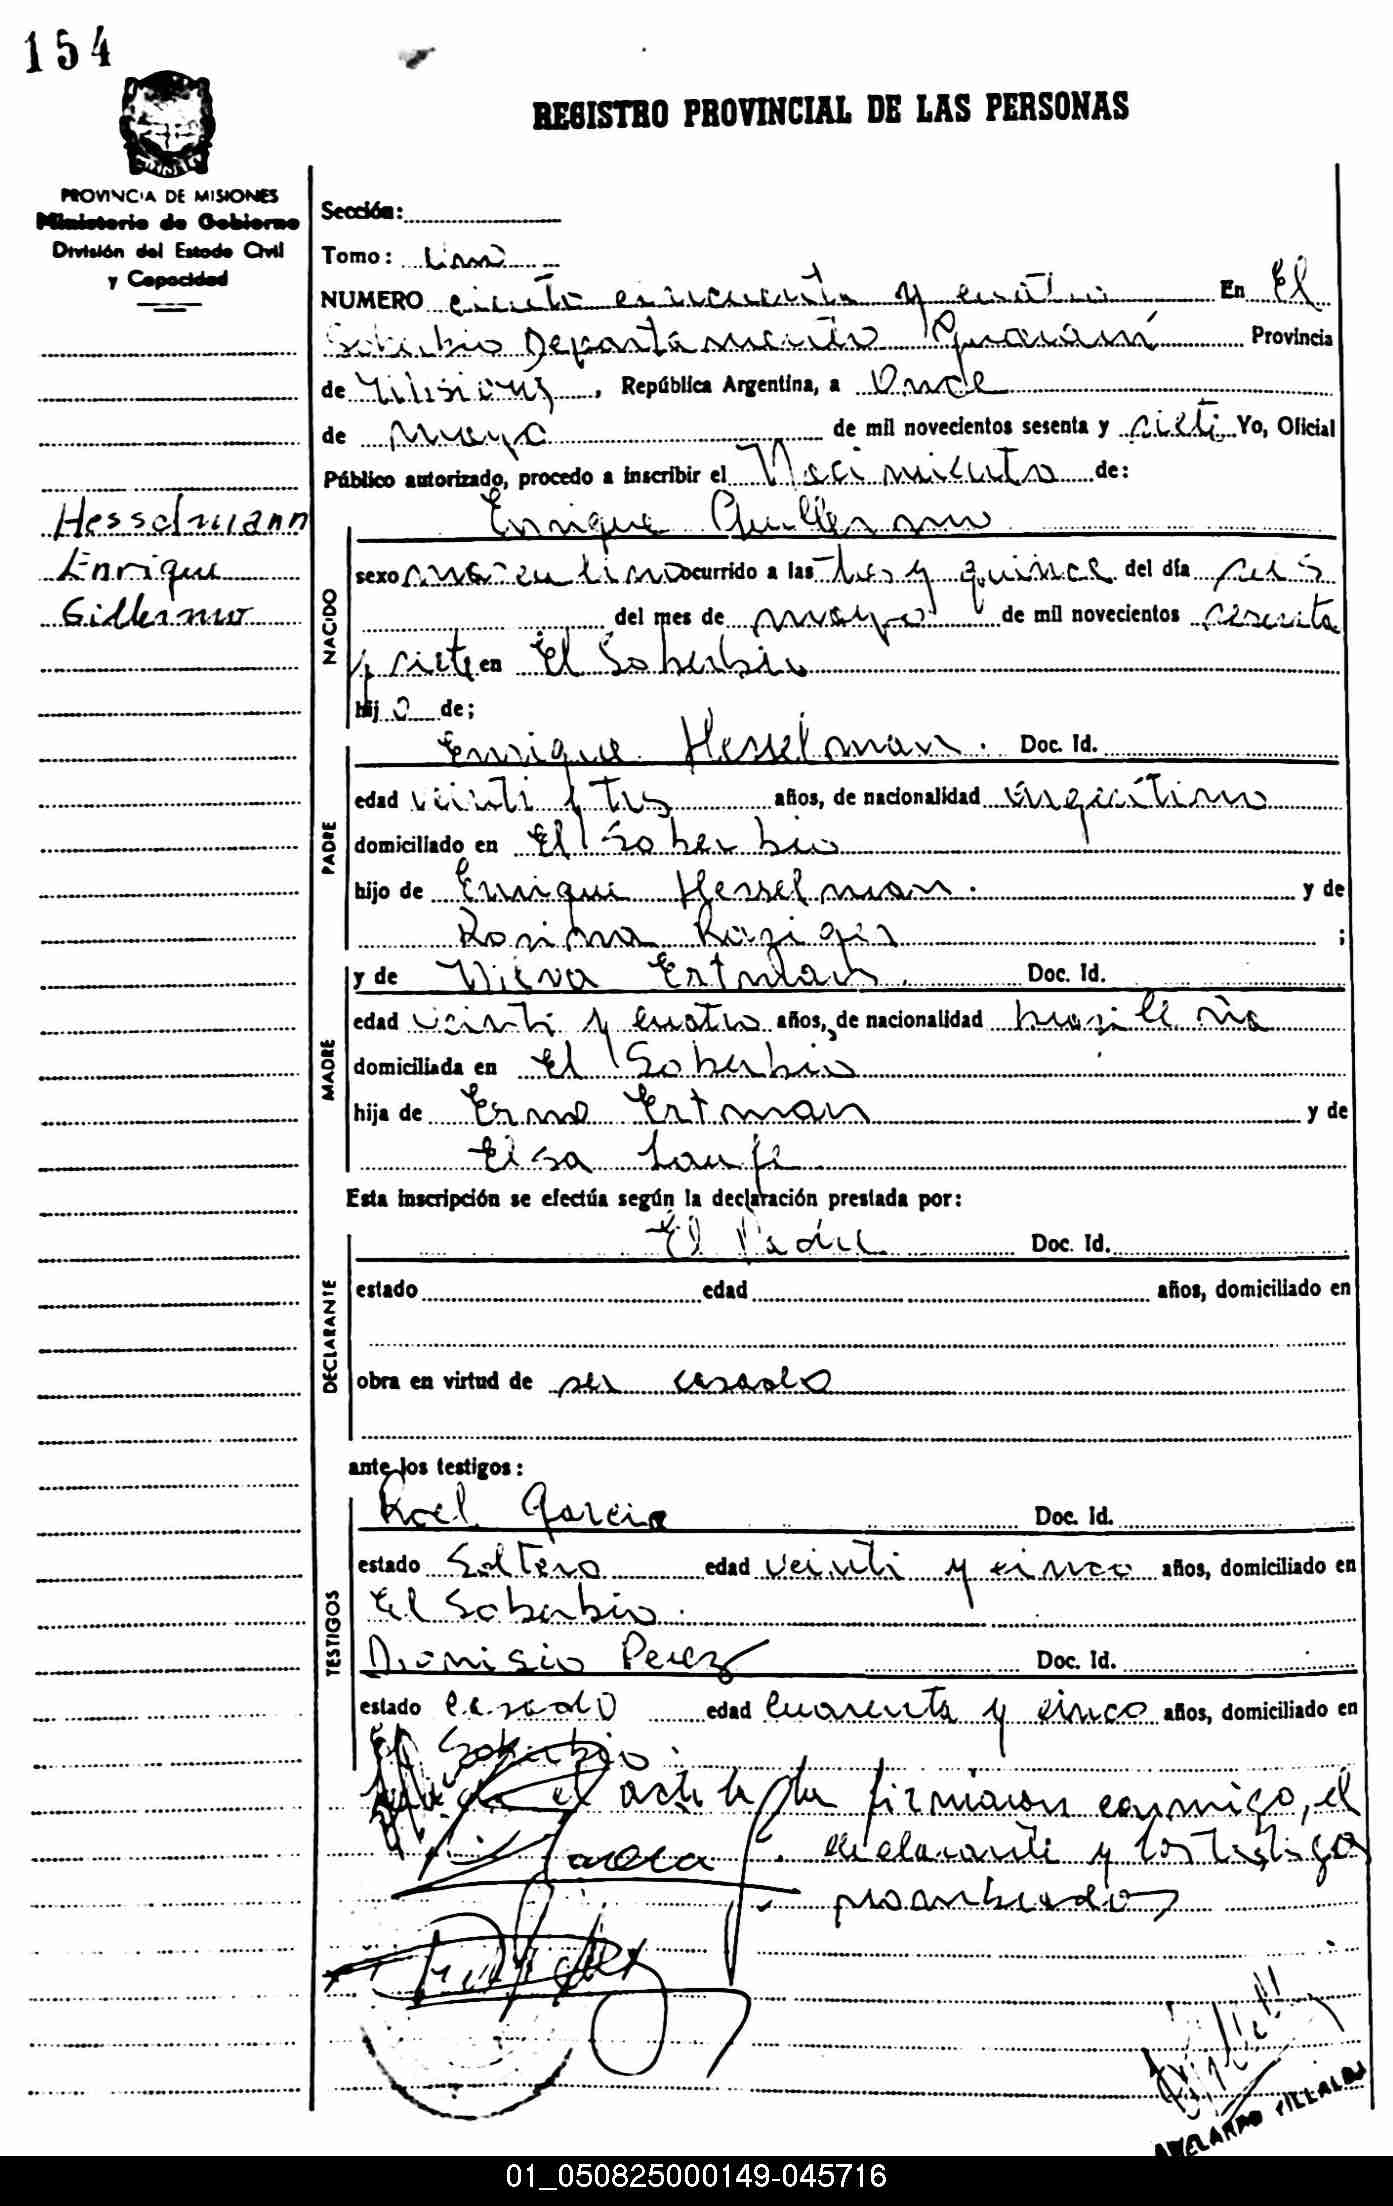 154
REGISTRO PROVINCIAL DE LAS PERSONAS
PROVINCIA DE MISIONES
Ministerio de Gobierno
División del Estado Civil
y Capacidad
Hesselmann
Enrique
Gillermo
Sección:
Tomo: uno
NUMERO ciento cincuenta y cuatro En El
Soberbio Departamento Guaraní Provincia
de Misiones, República Argentina, a Once
de mayo de mil novecientos sesenta y siete Yo, Oficial
Público autorizado, procedo a inscribir el Nacimiento de:
Enrique Guillermo
NACIDO
sexo masculino ocurrido a las tres y quince del día seis
del mes de mayo de mil novecientos sesenta
y siete en El Soberbio
hijo de;
PADRE
Enrique Hesselman. Doc. Id.
edad veinti y tres años, de nacionalidad argentino
domiciliado en El Soberbio
hijo de Enrique Hesselman. y de
Rosina ;
MADRE
y de Doc. Id.
edad veinti y cuatro años, de nacionalidad brasileña
domiciliada en El Soberbio
hija de Erno Ertman y de
Elsa
Esta inscripción se efectúa según la declaración prestada por:
DECLARANTE
El Padre Doc. Id.
estado edad años, domiciliado en
obra en virtud de ser casado
ante los testigos:
TESTIGOS
Roel Garcia Doc. Id.
estado Soltero edad veinti y cinco años, domiciliado en
El Soberbio.
Dionisio Perez Doc. Id.
estado casado edad cuarenta y cinco años, domiciliado en
El Soberbio
el acta la firmaron conmigo, el
declarante y los testigos
Garcia
ABELARDO VILLALBA
01_050825000149-045716